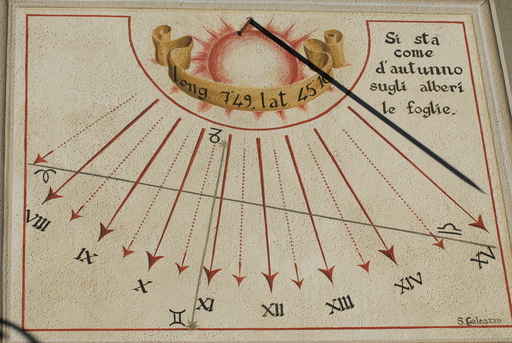 Si sta
come
d'autunno
sugli alberi
le foglie.
long 7°49, lat 45°10
♑
♈
♎
VIII
IX
X
XI
XII
XIII
XIV
XV
♊
S. Galeazzo